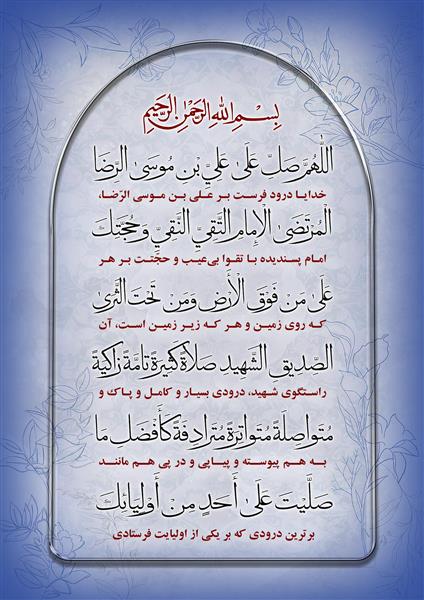 بِسْمِ اللهِ الرَّحْمٰنِ الرَّحِيمِ
اَللّٰهُمَّ صَلِّ عَلَىٰ عَلِيِّ بْنِ مُوسَى الرِّضَا
خدایا درود فرست بر علی بن موسی الرّضا،
الْمُرْتَضَى الْإِمَامِ التَّقِيِّ النَّقِيِّ وَ حُجَّتِكَ
امام پسندیده با تقوا بی‌عیب و حجّتت بر هر
عَلَىٰ مَنْ فَوْقَ الْأَرْضِ وَ مَنْ تَحْتَ الثَّرَىٰ
که روی زمین و هر که زیر زمین است، آن
الصِّدِّيقِ الشَّهِيدِ صَلَاةً كَثِيرَةً تَامَّةً زَاكِيَةً
راستگوی شهید، درودی بسیار و کامل و پاک و
مُتَوَاصِلَةً مُتَوَاتِرَةً مُتَرَادِفَةً كَأَفْضَلِ مَا
به هم پیوسته و پیاپی و در پی هم مانند
صَلَّيْتَ عَلَىٰ أَحَدٍ مِنْ أَوْلِيَائِكَ
برترین درودی که بر یکی از اولیایت فرستادی